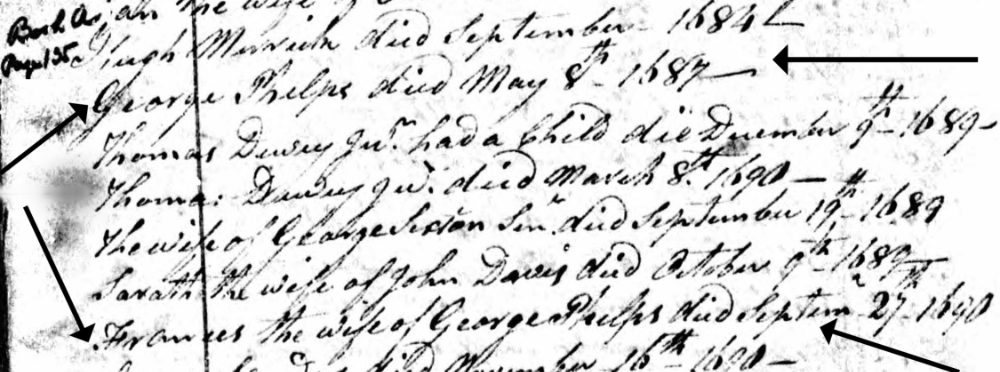 Book A
Page 135
the wife of
Hugh died September 1684
George Phelps died May 8th 1687
Thomas Dewey Junr. had a Child die December 9th 1689
Thomas Dewey Junr. died March 8th 1690
the wife of George Sexton Senr died September 19th 1689
Sarath the wife of John Davis died October 9th 1689
Frances the wife of George Phelps died Septemr 27th 1690
died November 16th 1690